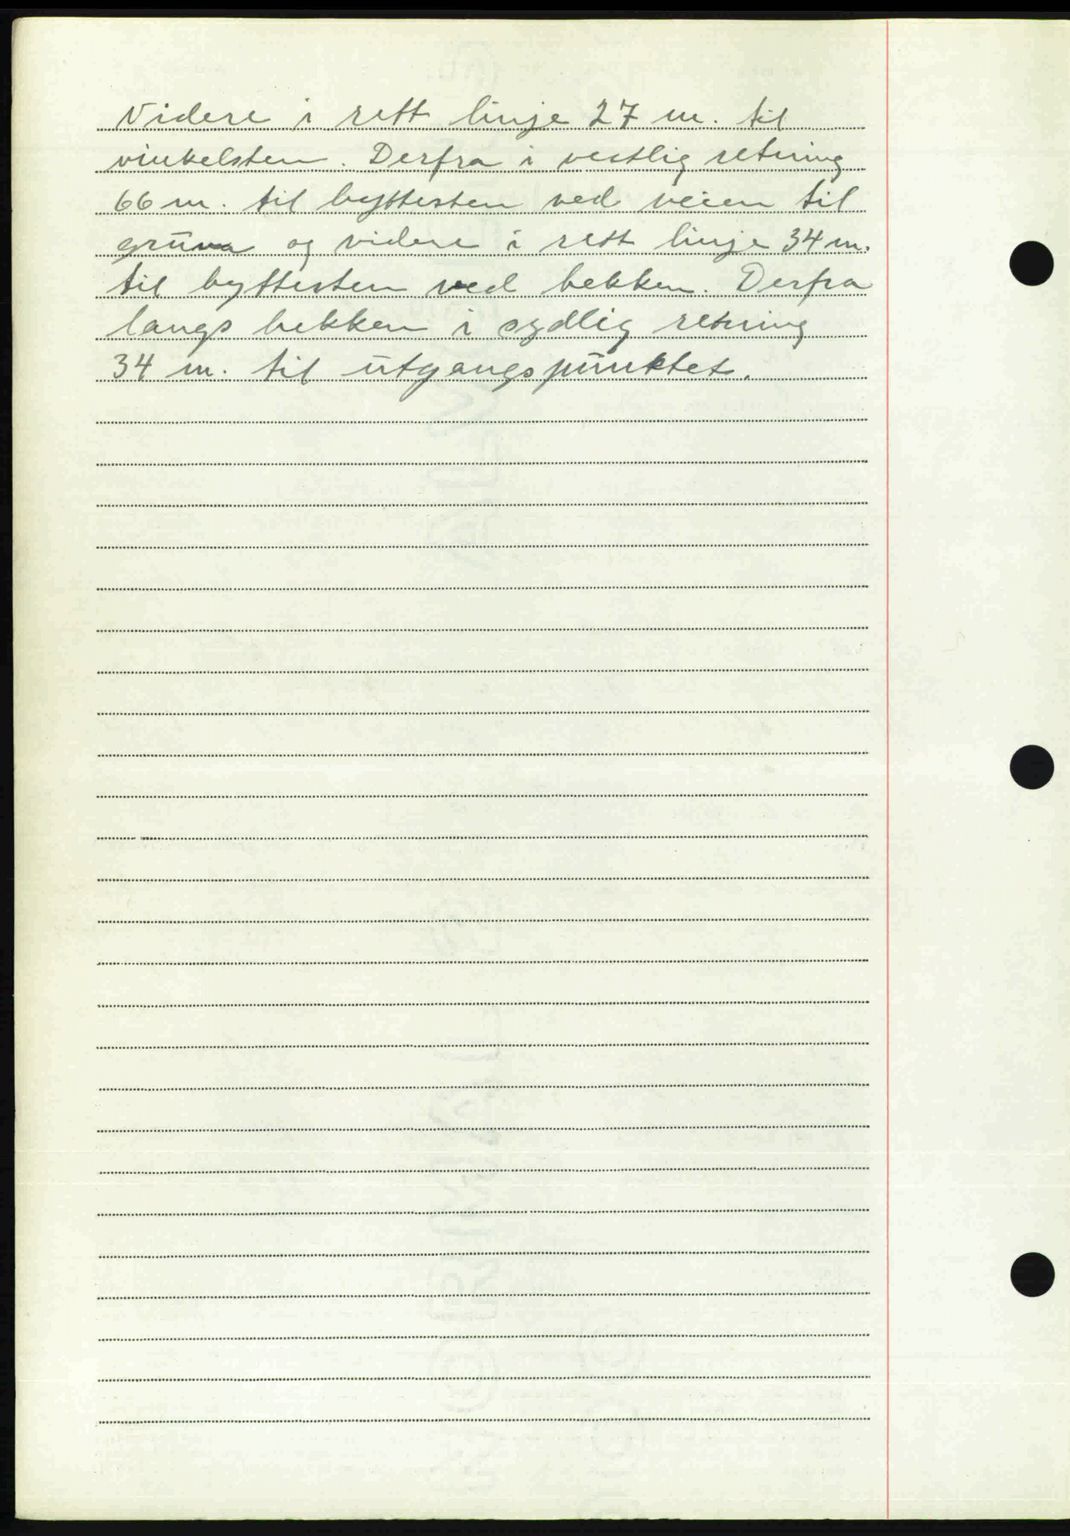 Videre i rett linje 27 m. til
vinkelsten. Derfra i vestlig retning
66 m. til byttesten ved veien til
gruva og videre i rett linje 34 m.
til byttesten ved bekken. Derfra
langs bekken i sydlig retning
34 m. til utgangspunktet.